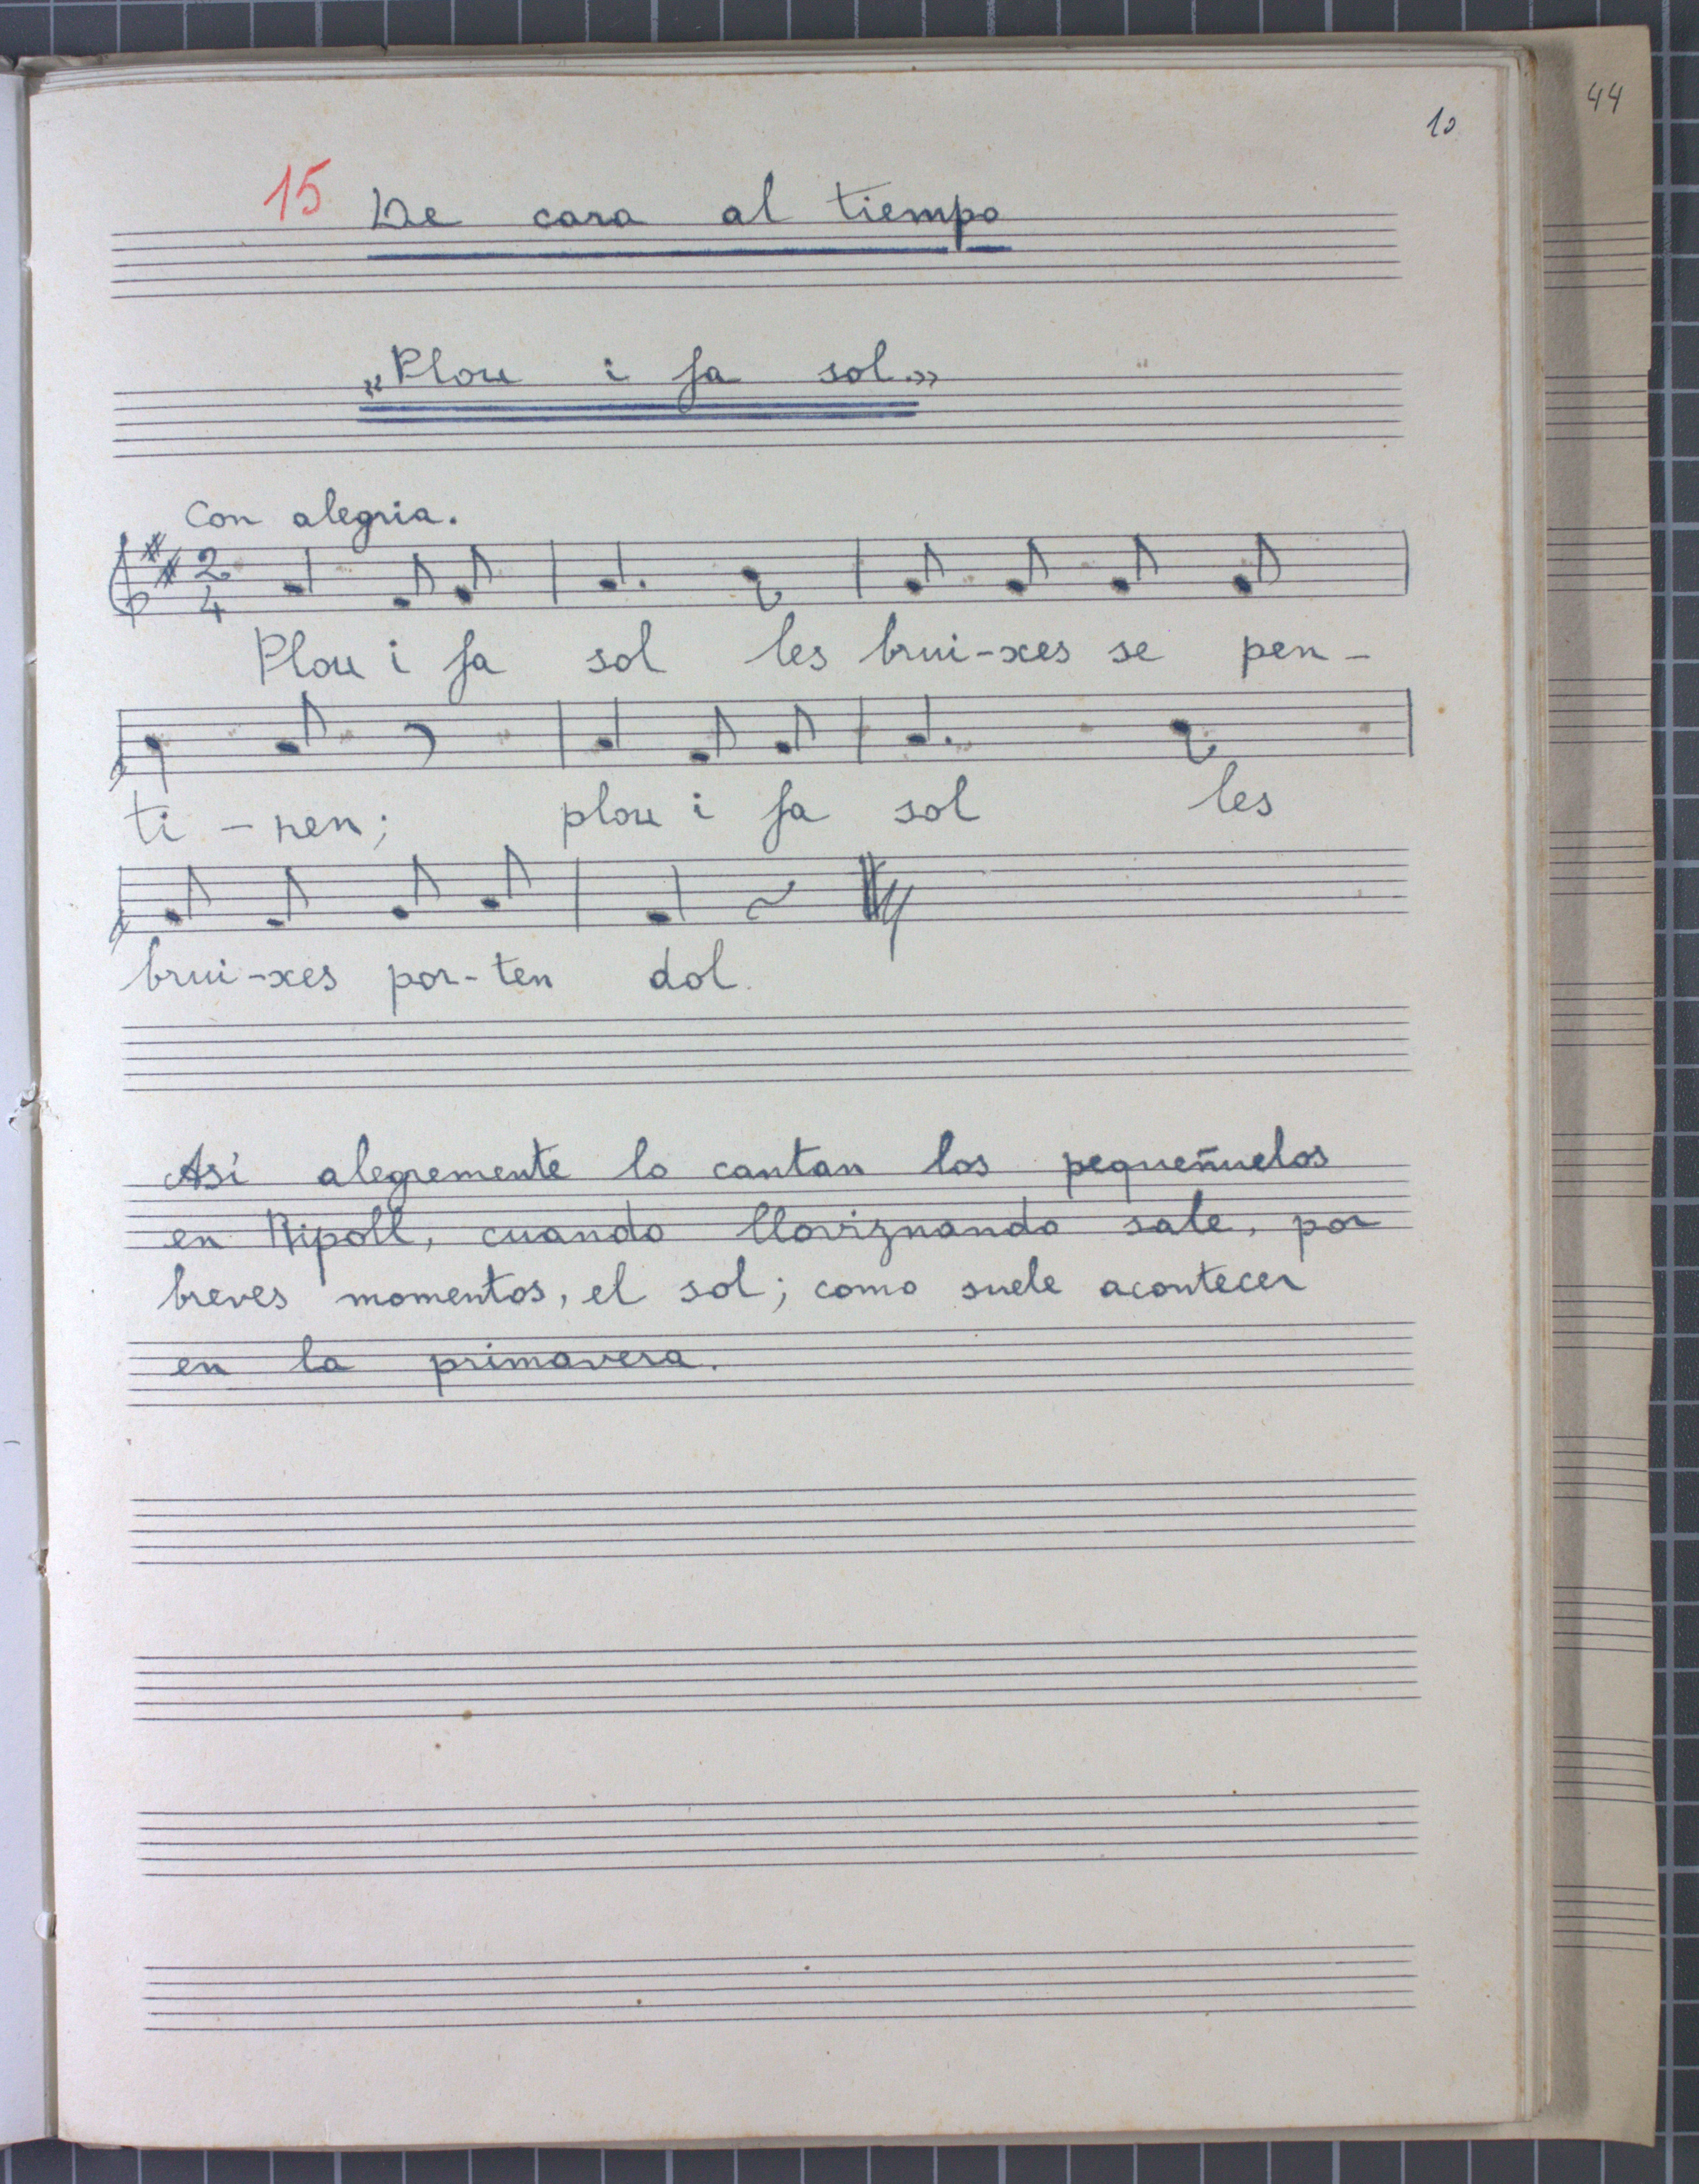 44
10
15 De cara al tiempo
„Plou i fa sol.»
Con alegria.
2
4
Plou i fa sol les brui-xes se pen-
ti-nen; plou i fa sol les
brui-xes por-ten dol.
Así alegremente lo cantan los pequeñuelos
en Ripoll, cuando lloviznando sale, por
breves momentos, el sol; como suele acontecer
en la primavera.